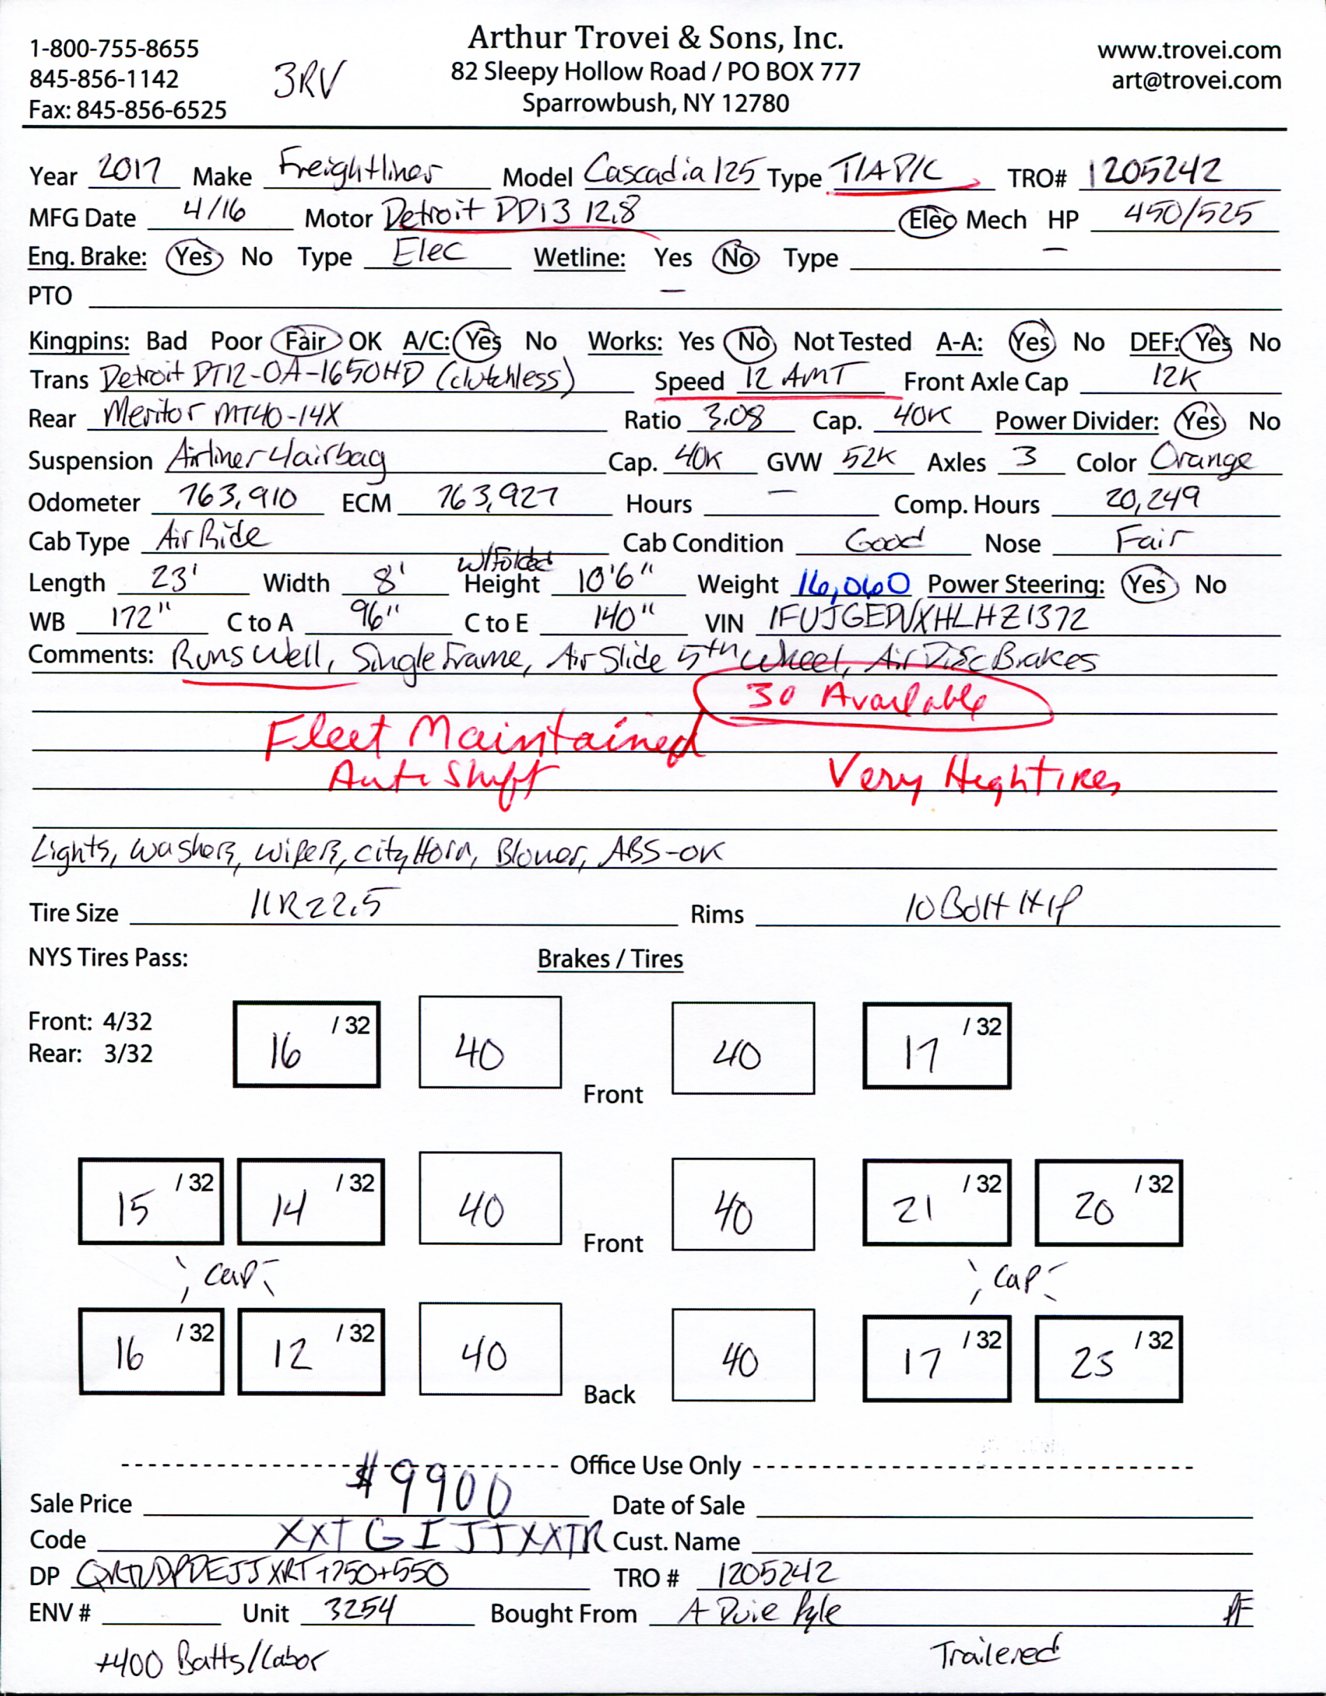 1-800-755-8655
845-856-1142
Fax: 845-856-6525
3RV
Arthur Trovei & Sons, Inc.
82 Sleepy Hollow Road / PO BOX 777
Sparrowbush, NY 12780
www.trovei.com
art@trovei.com
Year 2017 Make Freightliner Model Cascadia 125 Type T/A D/C TRO# 1205242
MFG Date 4/16 Motor Detroit DD13 12.8 Elec Mech HP 450/525
Eng. Brake: Yes No Type Elec Wetline: Yes No Type —
PTO —
Kingpins: Bad Poor Fair OK A/C: Yes No Works: Yes No Not Tested A-A: Yes No DEF: Yes No
Trans Detroit DT12-OA-1650HD (clutchless) Speed 12 AMT Front Axle Cap 12K
Rear Meritor MT40-14X Ratio 3.08 Cap. 40K Power Divider: Yes No
Suspension Airliner 4airbag Cap. 40K GVW 52K Axles 3 Color Orange
Odometer 763,910 ECM 763,927 Hours — Comp. Hours 20,249
Cab Type Air Ride Cab Condition Good Nose Fair
Length 23' Width 8' w/Folded Height 10'6" Weight 16,060 Power Steering: Yes No
WB 172" C to A 96" C to E 140" VIN 1FUJGEDVXHLHZ1372
Comments: Runs Well, Single Frame, Air Slide 5th Wheel, Air Disc Brakes
30 Available
Fleet Maintained
Auto Shift Very High Tires
Lights, Washers, Wipers, City Horn, Blower, ABS-OK
Tire Size 11R22.5 Rims 10 Bolt H/P
NYS Tires Pass: Brakes / Tires
Front: 4/32
Rear: 3/32
16 /32 40 Front 40 17 /32
15 /32 14 /32 40 Front 40 21 /32 20 /32
Cap Cap
16 /32 12 /32 40 Back 40 17 /32 25 /32
Office Use Only
Sale Price $9900 Date of Sale
Code XXTGIJTXXTR Cust. Name
DP +250+550 TRO # 1205242
ENV # Unit 3254 Bought From A Duie Pyle
+400 Batts/Labor Trailered